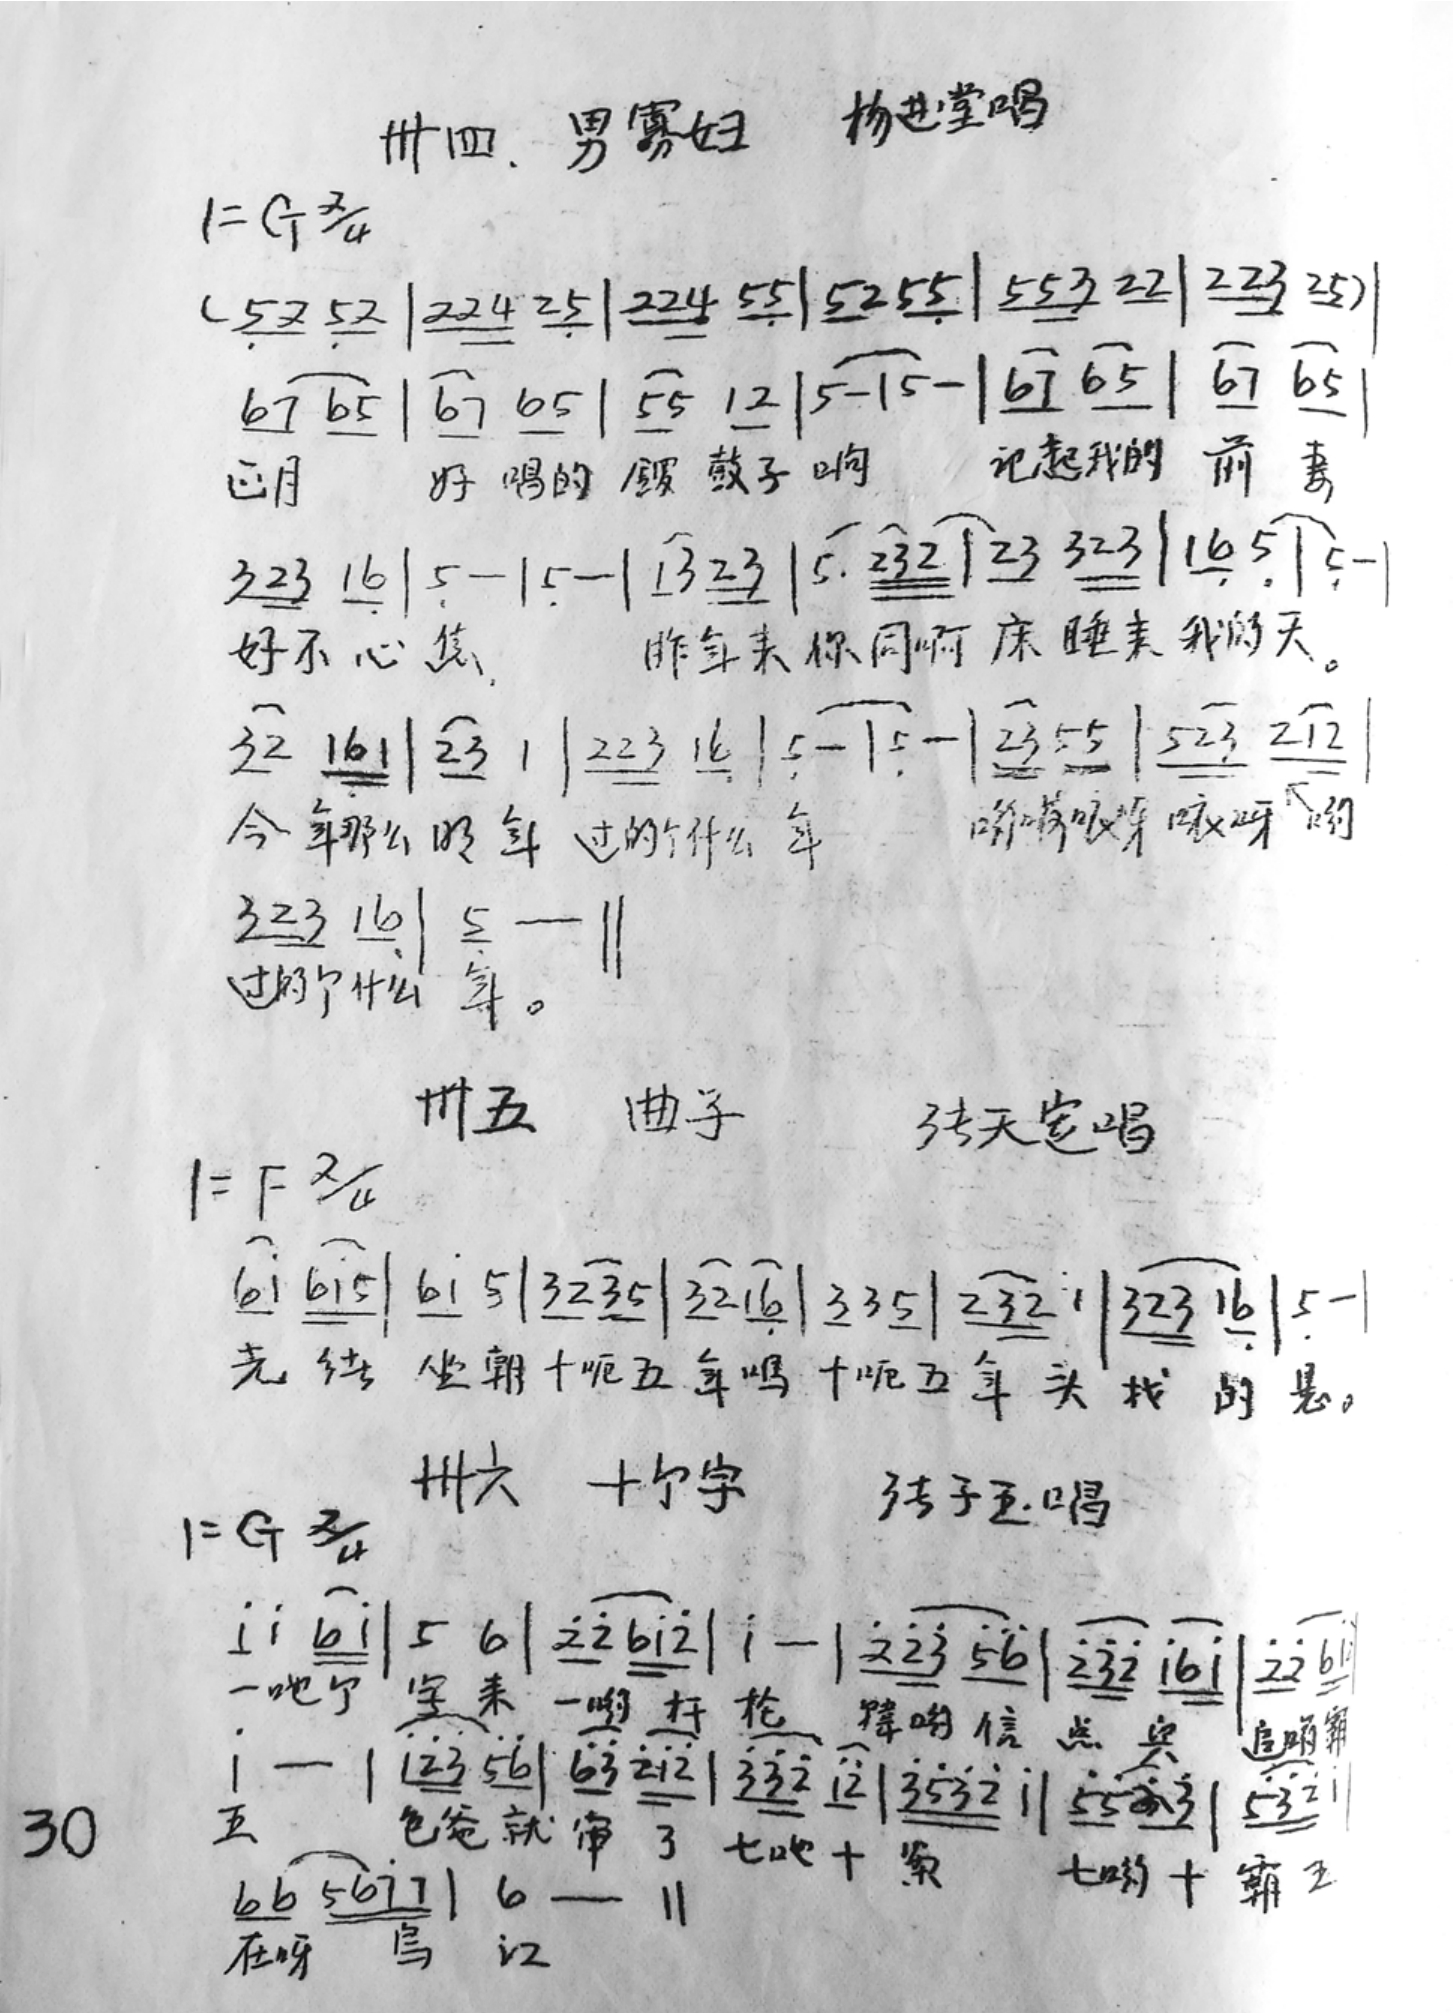 卅四. 男寡妇 杨进堂唱
1=G 2/4
(52 52|224 25|224 55|52 55|553 22|223 25)|
67 65|67 65|55 12|5-|5-|67 65|67 65|
正月 好唱的锣鼓子响 记起我的前妻
323 16|5-|5-|13 23|5. 232|23 323|16 5|5-|
好不心焦, 昨年来你同啊床睡来我的天。
32 161|23 1|223 16|5-|5-|23 55|523 212|
今年那么明年过的个什么年 哟嗬咳呀咳呀哟
323 16|5-‖
过的个什么年。
卅五 曲子 张天定唱
1=F 2/4
6i 6i5|6i 5|32 35|32 16|3 35|232 i|323 16|5-|
尧 坐朝十呃五年吗十呃五年头找的
卅六 十个字 张子玉唱
1=G 2/4
i i 6i|5 6|22 6i2|i-|223 56|232 i6i|22 6i|
一吔个字来一哟杆枪 韩哟信点兵 哟霸
i-|i23 56|63 2i2|332 i2|3532 i|55 33|532 i|
王 包爸就审了七吔十案 七哟十霸王
66 5677|6-‖
在呀乌江
30